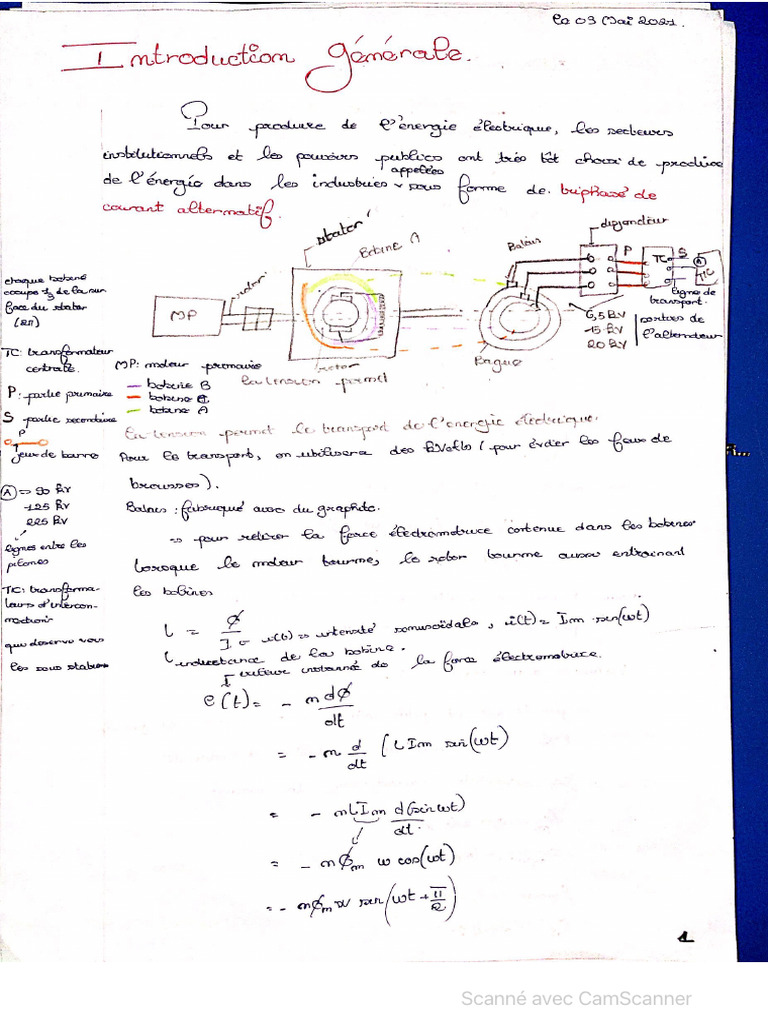 Le 03 Mai 2021.
Introduction générale.
Pour produire de l'énergie électrique, les secteurs
institutionnels et les pouvoirs publics ont très tôt choisi de produire
appelées
de l'énergie dans les industries sous forme de triphasé de
courant alternatif.
stator
Bobine A
Balais
disjoncteur
P
S
TC
A
TIC
chaque bobine
occupe 1/3 de la sur
face du stator
(2π)
MP
rotor
ligne de
transport.
6,5 kV
15 kV
20 kV
sorties de
l'alternateur
TC: transformateur
centrale.
MP: moteur primaire
rotor
Bague
P: partie primaire
bobine B
la tension permet
bobine C
S partie secondaire
bobine A
P
jeu de barre
la tension permet le transport de l'énergie électrique.
Pour le transport, on utilisera des kVolts (pour éviter les feux de
brousses).
A => 90 kV
125 kV
225 kV
Balais : fabriqué avec du graphite.
=> pour retirer la force électromotrice contenue dans les bobines
lignes entre les
pilones
lorsque le moteur tourne, le rotor tourne aussi entrainant
les bobines
TIC: transforma-
teurs d'intercon-
nections
que desserve vers
les sous station
L = ϕ/I → i(t) => intensité sinusoïdale, i(t) = Im sin(ωt)
L inductance de la bobine.
valeur instanné de la force électromotrice.
e(t) = - n dϕ/dt
= - n d/dt (L Im sin(ωt)
= - nLIm d(sin ωt)/dt
= - nϕm ω cos(ωt)
= - nϕm ω sin(ωt + π/2)
1
Scanné avec CamScanner